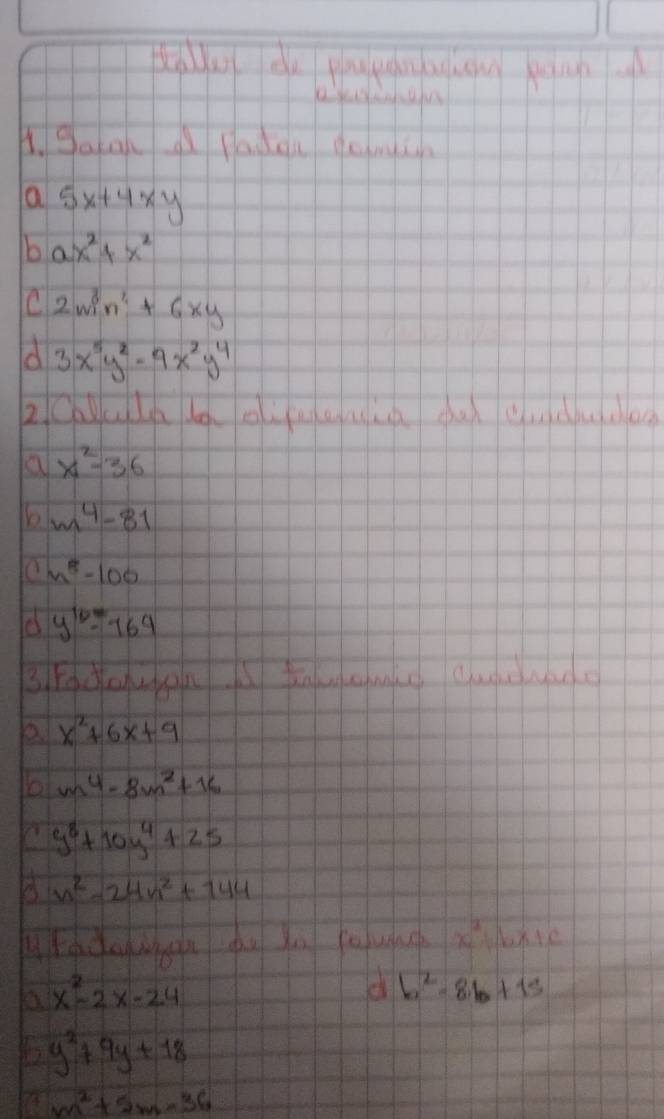 taller de preparacion para el
examen
1. Sacar el factor comun
a 5x+4xy
b ax²+x²
c 2m³n + 6xy
d 3x⁵y² - 9x²y⁴
2. Calcula la diferencia del cuadrados
a x²-36
b m⁴-81
c n⁸-100
d y¹⁰-169
3. Factorizar el trinomio cuadrado
a x²+6x+9
b m⁴-8m²+16
c y⁸+10y⁴+25
d n²-24n²+144
4 Factorizar de la forma x²+bx+c
a x²-2x-24
d b²-8b+15
b y²+9y+18
c m²+5m-36